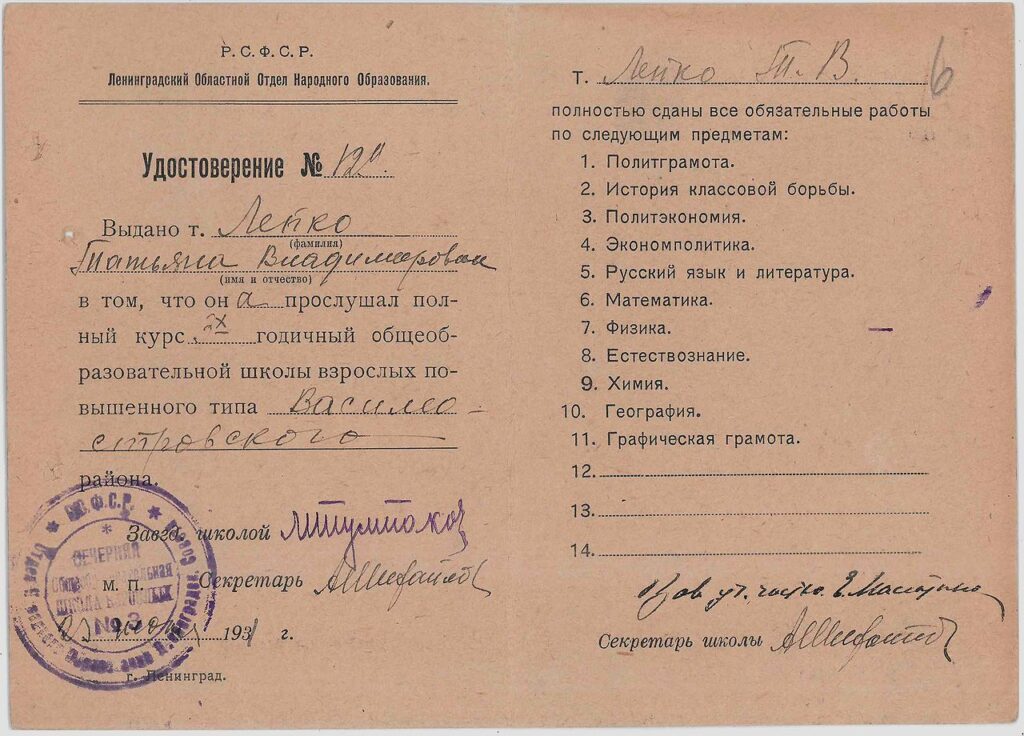 Р.С.Ф.С.Р.
Ленинградский Областной Отдел Народного Образования.
Удостоверение №
Выдано т. Лепко
(фамилия)
Татьяна Владимировна
(имя и отчество)
в том, что он а прослушал пол-
ный курс IX годичный общеоб-
разовательной школы взрослых по-
вышенного типа Василео-
стровского
района.
Завед. школой
М. П. Секретарь
1931 г.
г. Ленинград.
Р.С.Ф.С.Р.
ВЕЧЕРНЯЯ
ШКОЛА ВЗРОСЛЫХ
№ 3
6
Т. Лепко Т. В.
полностью сданы все обязательные работы
по следующим предметам:
1. Политграмота.
2. История классовой борьбы.
3. Политэкономия.
4. Экономполитика.
5. Русский язык и литература.
6. Математика.
7. Физика.
8. Естествознание.
9. Химия.
10. География.
11. Графическая грамота.
12.
13.
14.
Зав уч. частью
Секретарь школы